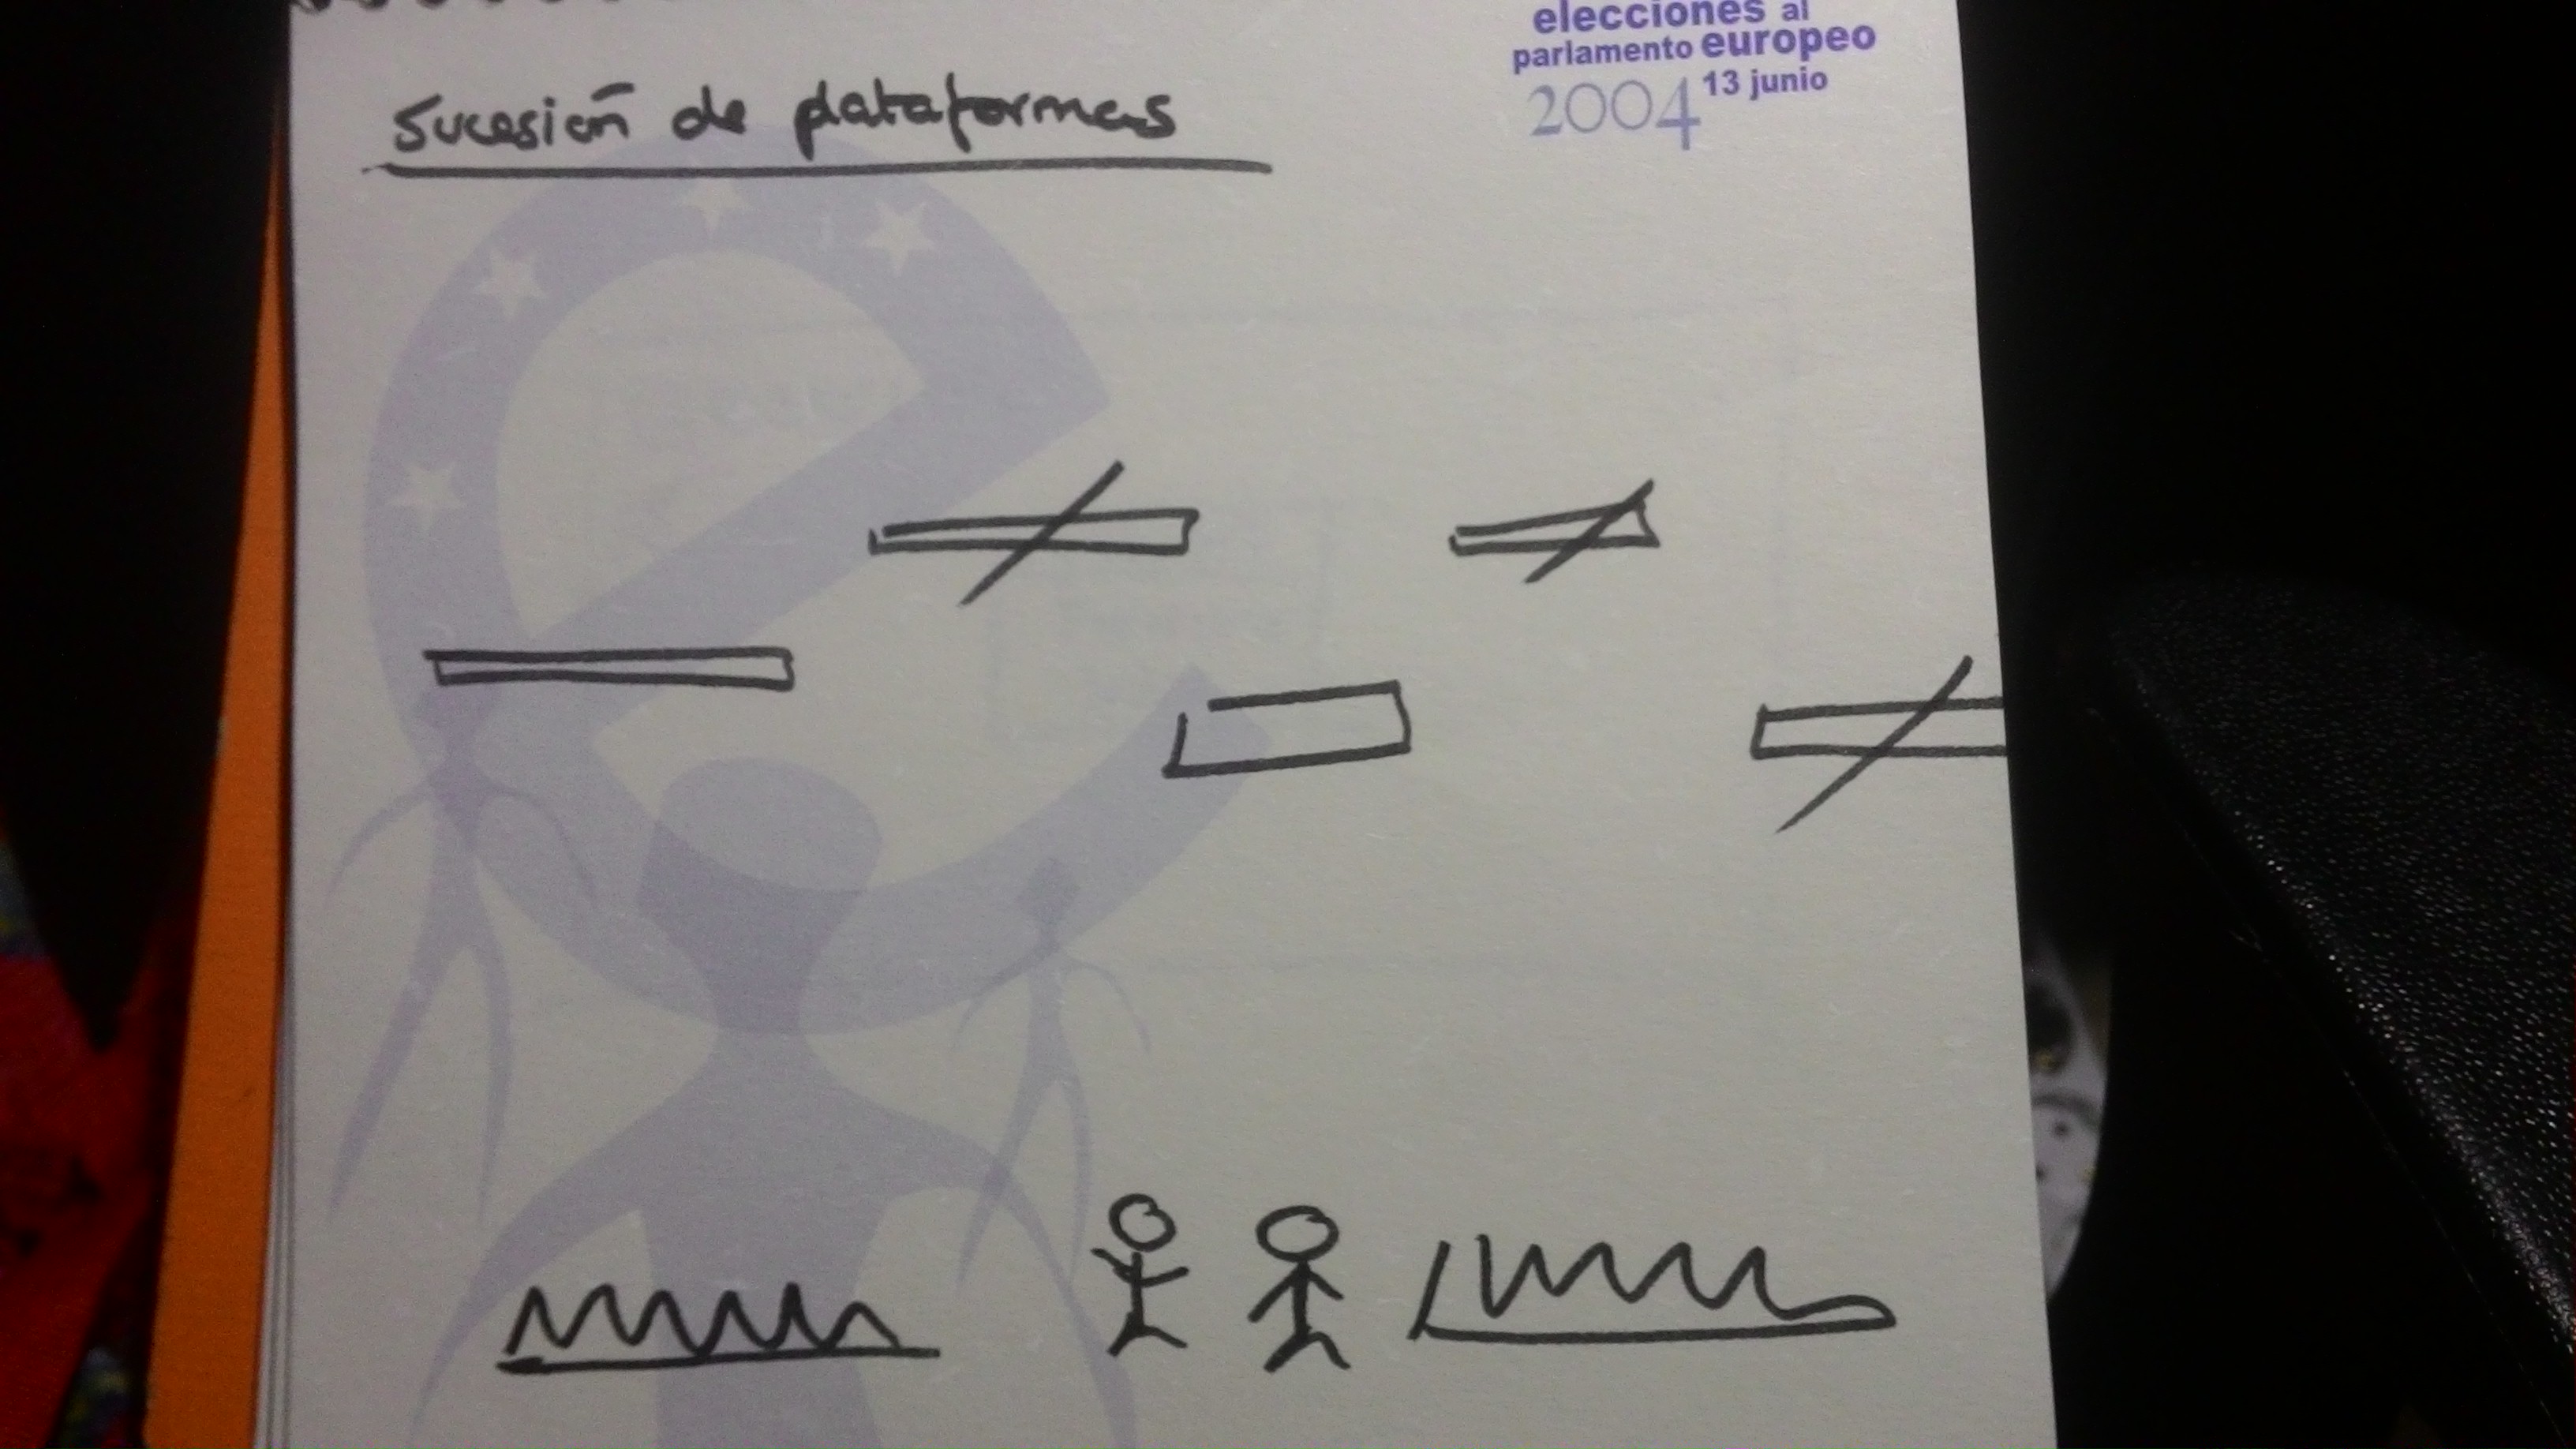 elecciones al
parlamento europeo
2004 13 junio
Sucesión de plataformas